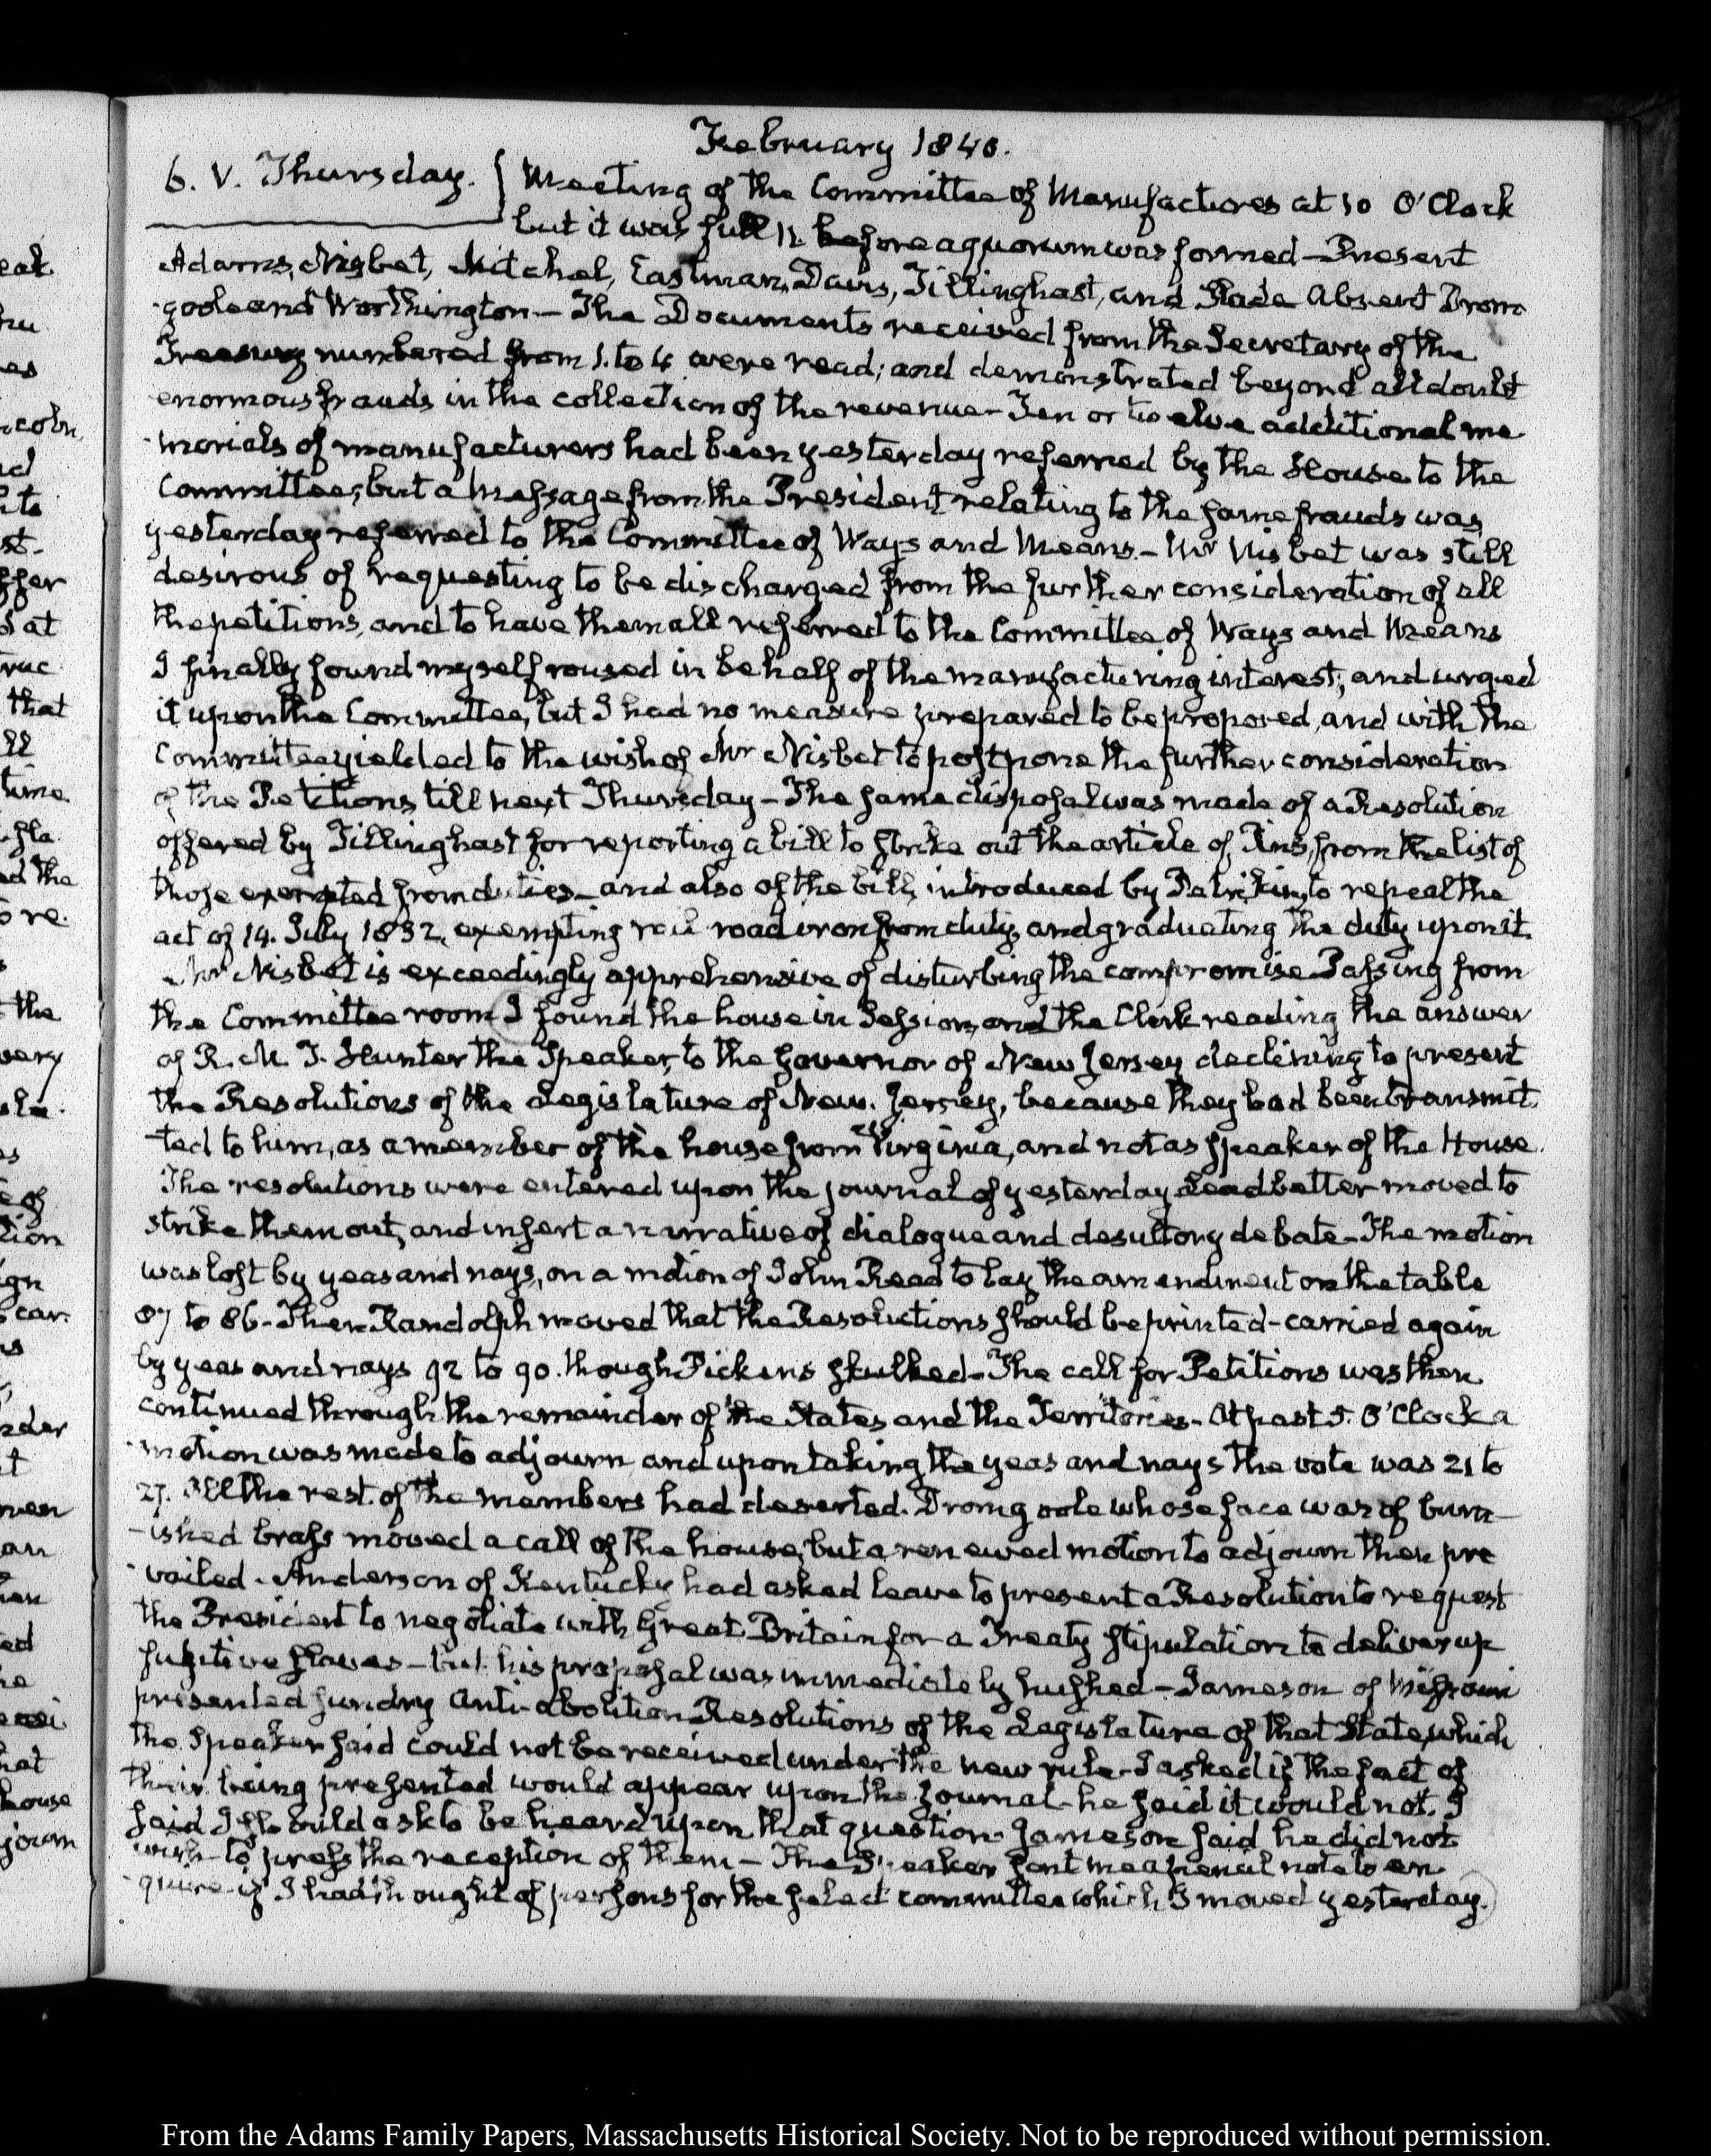 February 1840.
6. V. Thursday. } Meeting of the Committee of Manufactures at 10 O'Clock
but it was full 11. before a quorum was formed – Present
Adams, Nisbet, Mitchel, Eastman, Davis, Tillinghast, and Slade Absent Drom
-goole and Worthington – The Documents received from the Secretary of the
Treasury numbered from 1. to 4 were read; and demonstrated beyond all doubt
enormous frauds in the collection of the revenue – Ten or twelve additional me
-morials of manufacturers had been yesterday referred by the House to the
Committee; but a Message from the President relating to the same frauds was
yesterday referred to the Committee of Ways and Means. – Mr Nisbet was still
desirous of requesting to be discharged from the further consideration of all
the petitions, and to have them all referred to the Committee of Ways and Means
I finally found myself roused in behalf of the manufacturing interest; and urged
it upon the Committee, but I had no measure prepared to be proposed, and with the
Committee yielded to the wish of Mr Nisbet to postpone the further consideration
of the Petitions till next Thursday – The same disposal was made of a Resolution
offered by Tillinghast for reporting a bill to strike out the article of Pins, from the list of
those exempted from duties – and also of the bill, introduced by Petrikin, to repeal the
act of 14. July 1832, exempting rail road iron from duty, and graduating the duty upon it.
Mr Nisbet is exceedingly apprehensive of disturbing the compromise Passing from
the Committee room I found the house in Session, and the Clerk reading the answer
of R. M. T. Hunter the Speaker, to the Governor of New Jersey declining to present
the Resolutions of the Legislature of New. Jersey, because they had been transmit
-ted to him, as a member of the house from Virginia, and not as speaker of the House.
The resolutions were entered upon the journal of yesterday Leadbetter moved to
strike them out, and insert a narrative of dialogue and desultory debate – The motion
was lost by yeas and nays, on a motion of John Read to lay the amendment on the table
87 to 86 – Then Randolph moved that the Resolutions should be printed – carried again
by yeas and nays 92 to 90. though Pickens skulked – The call for Petitions was then
continued through the remainder of the States and the Territories – At past 5. O'Clock a
motion was made to adjourn and upon taking the yeas and nays the vote was 21 to
27. All the rest of the members had deserted. Dromgoole whose face was of burn–
-ished brass moved a call of the house, but a renewed motion to adjourn then pre
-vailed – Anderson of Kentucky had asked leave to present a Resolution to request
the President to negotiate with Great-Britain for a Treaty stipulation to deliver up
fugitive slaves – but his proposal was immediately hushed – Jameson of Missouri
presented sundry Anti-abolition Resolutions of the Legislature of that State, which
the Speaker said could not be received under the new rule – I asked if the fact of
their being presented would appear upon the Journal – he said it would not. I
said I should ask to be heard upon that question – Jameson said he did not
wish to press the reception of them – The Speaker sent me a pencil note to en
-quire if I had thought of persons for the select committee which I moved yesterday.
eat
hu
es
ncoln,
nd
to
st.
ffer
s at
ruc
that
ll
time
sla
d the
re.
the
very
as
e of
tion
ign
car
is
nder
t
men
an
ed
he
hat
house
journ
From the Adams Family Papers, Massachusetts Historical Society. Not to be reproduced without permission.